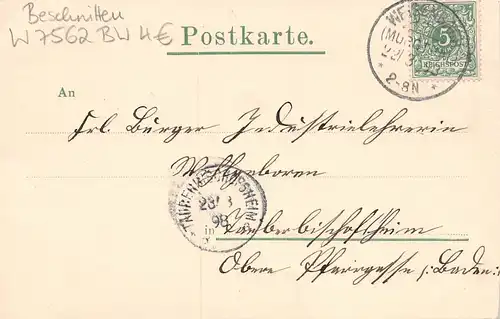 Beschnitten
W 7562 BW 4€
Postkarte.
5
REICHSPOST
2-8N
An
Frl. Bürger Industrielehrerin
Wohlgeboren
TAUBERBISCHOFSHEIM
28/3
98
in Tauberbischofsheim
Obere Pfarrgasse /:Baden:/